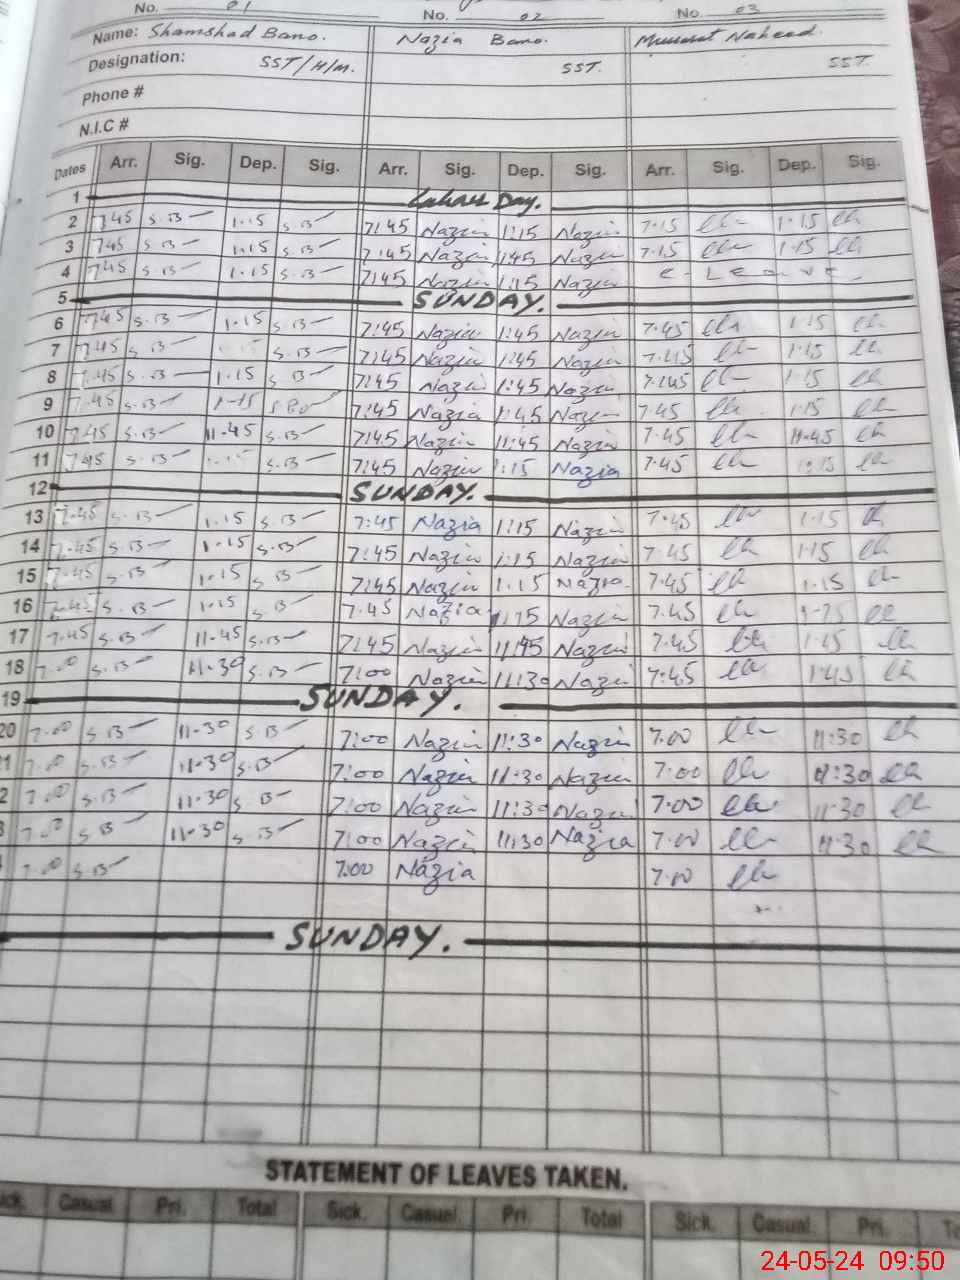 No. 01 No. 02 No. 03
Name: Shamshad Bano. Nazia Bano. Mussarat Naheed.
Designation: SST/H/M. SST. SST.
Phone #
N.I.C #
Dates Arr. Sig. Dep. Sig. Arr. Sig. Dep. Sig. Arr. Sig. Dep. Sig.
1 Labour Day.
2 7.45 S.B 1.15 S.B 7:45 Nazia 1:15 Nazia 7.15 1.15
3 7.45 S.B 1.15 S.B 7:45 Nazia 1:45 Nazia 7.15 1.15
4 7.45 S.B 1.15 S.B 7:45 Nazia 1:15 Nazia C-Leave
5 SUNDAY.
6 7.45 S.B 1.15 S.B 7:45 Nazia 1:45 Nazia 7.45 1.15
7 7.45 S.B S.B 7:45 Nazia 1:45 Nazia 7.45 1.15
8 7.45 S.B 1.15 S.B 7:45 Nazia 1:45 Nazia 7.45 1.15
9 7.45 S.B 1.15 7:45 Nazia 1:45 Nazia 7.45 1.15
10 7.45 S.B 11.45 S.B 7:45 Nazia 11:45 Nazia 7.45 11.45
11 7.45 S.B S.B 7:45 Nazia 1:15 Nazia 7.45
12 SUNDAY.
13 7.45 S.B 1.15 S.B 7:45 Nazia 1:15 Nazia 7.45 1.15
14 7.45 S.B 1.15 S.B 7:45 Nazia 1:15 Nazia 7.45 1.15
15 7.45 S.B 1.15 S.B 7:45 Nazia 1.15 Nazia 7.45 1.15
16 7.45 S.B 1.15 S.B 7.45 Nazia Nazia 7.45
17 7.45 S.B 11.45 S.B 7:45 Nazia 11:45 Nazia 7.45
18 7.00 S.B 11.30 S.B 7:00 Nazia 11:30 Nazia 7:45 1.45
19 SUNDAY.
20 7.00 S.B 11.30 S.B 7:00 Nazia 11:30 Nazia 7.00 11:30
1 7.00 S.B 11.30 S.B 7:00 Nazia 11:30 Nazia 7:00 11:30
2 7.00 S.B 11.30 S.B 7:00 Nazia 11:30 Nazia 7.00 11.30
3 7.00 S.B 11.30 S.B 7:00 Nazia 11:30 Nazia 7.00 11.30
7.00 S.B 7:00 Nazia 7.00
SUNDAY.
STATEMENT OF LEAVES TAKEN.
Casual Pri. Total Sick. Casual. Pri Total Sick. Casual. Pri
24-05-24 09:50